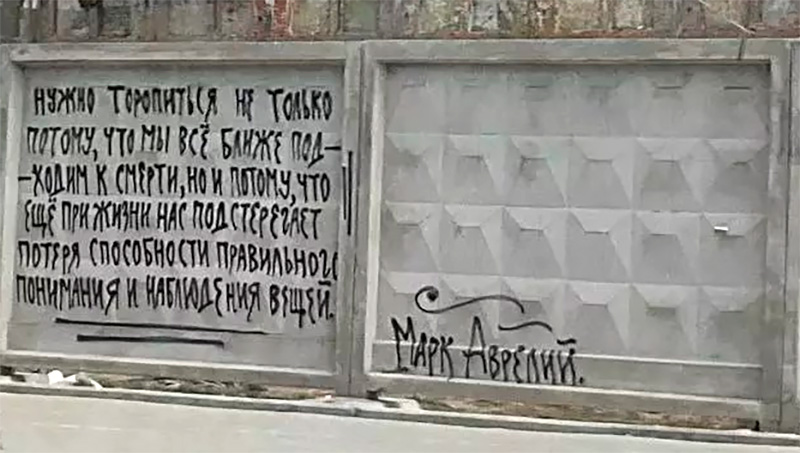 НУЖНО ТОРОПИТЬСЯ НЕ ТОЛЬКО
ПОТОМУ, ЧТО МЫ ВСЁ БЛИЖЕ ПОД-
-ХОДИМ К СМЕРТИ, НО И ПОТОМУ, ЧТО
ЕЩЁ ПРИ ЖИЗНИ НАС ПОДСТЕРЕГАЕТ
ПОТЕРЯ СПОСОБНОСТИ ПРАВИЛЬНОГО
ПОНИМАНИЯ И НАБЛЮДЕНИЯ ВЕЩЕЙ.
МАРК АВРЕЛИЙ.